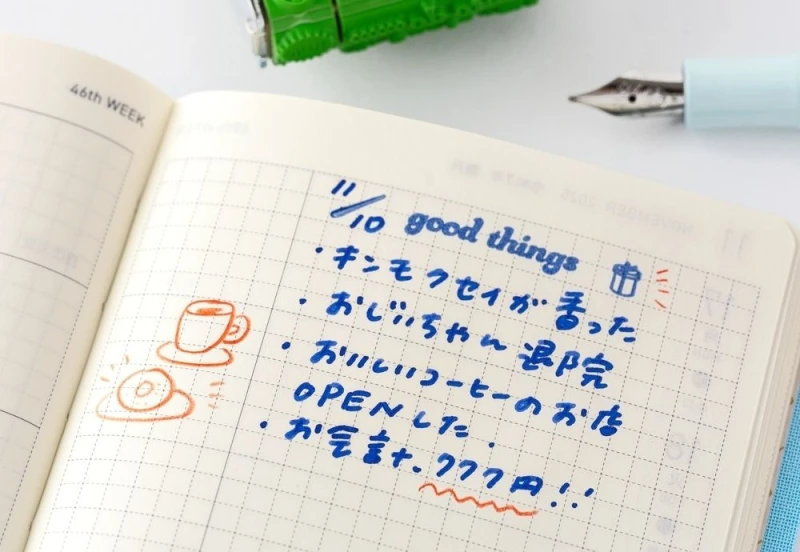 46th WEEK
11/10 good things
・キンモクセイが香った
・おじいちゃん退院
・おいしいコーヒーのお店
OPENした.
・お会計が777円!!